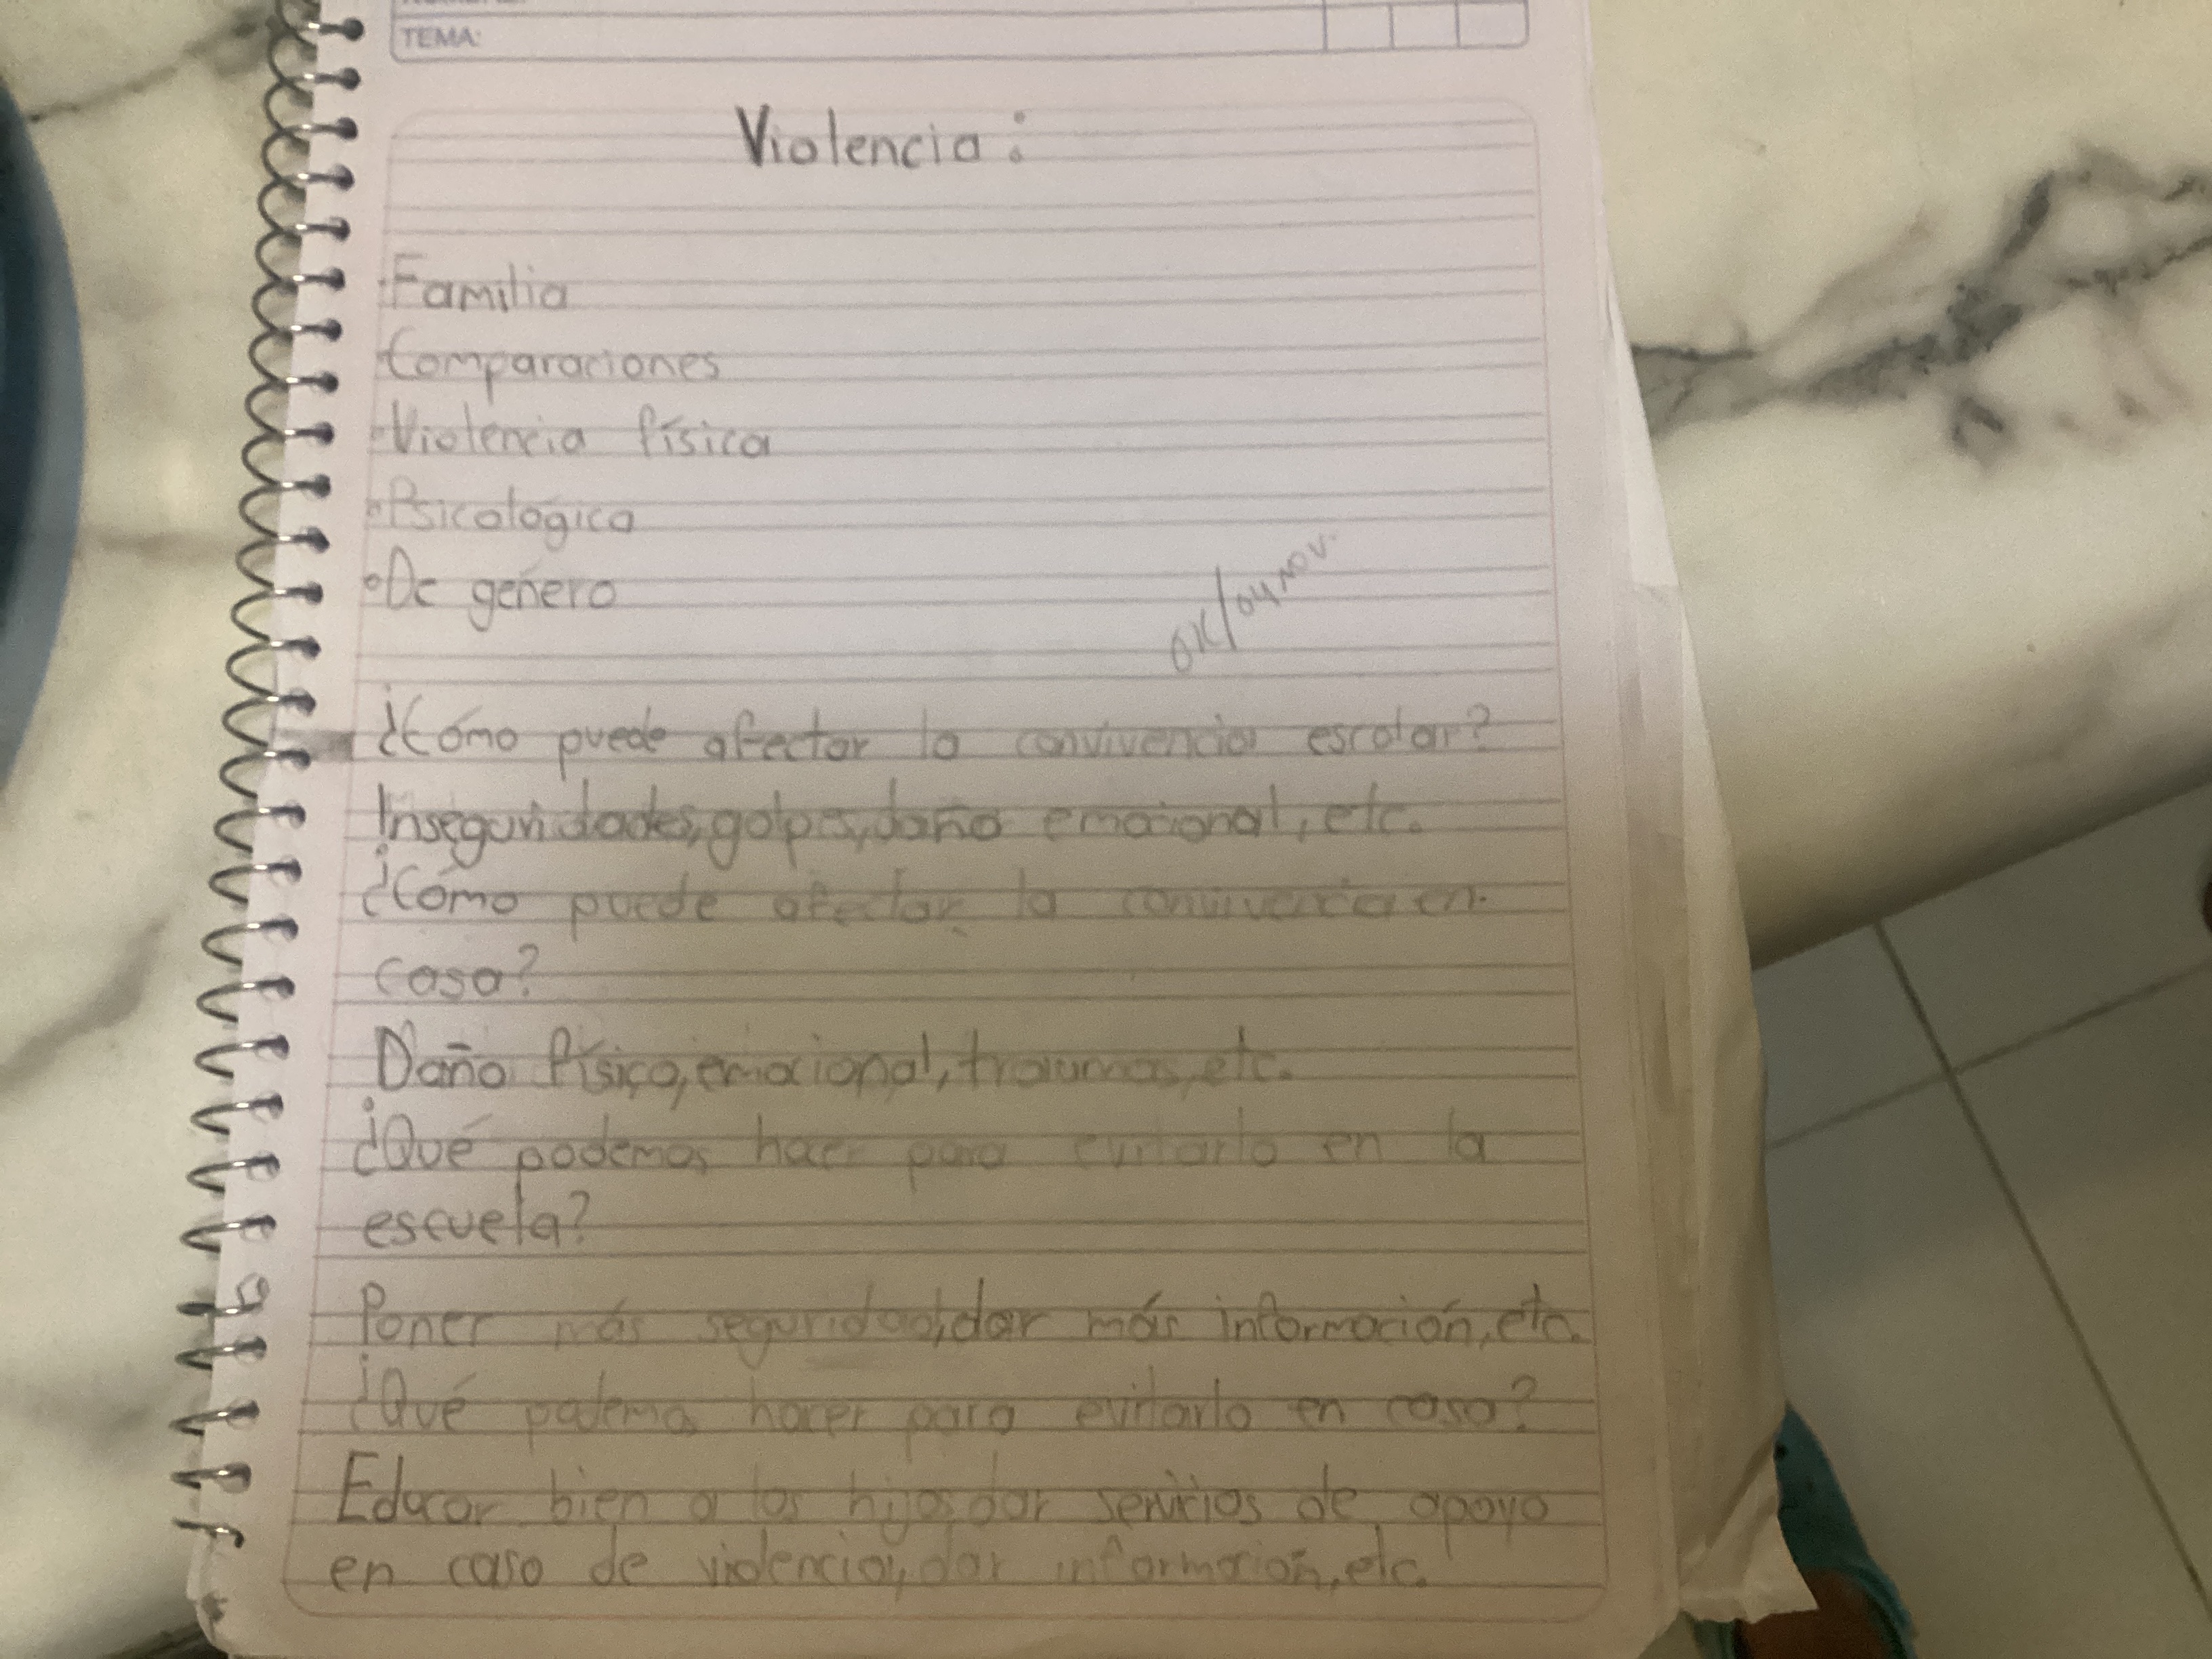 TEMA:
Violencia:
•Familia
•Comparaciones
•Violencia física
•Psicológica
•De género
OK/04 NOV.
¿Cómo puede afectar la convivencia escolar?
Inseguridades, golpes, daño emocional, etc.
¿Cómo puede afectar la convivencia en
casa?
Daño físico, emocional, traumas, etc.
¿Qué podemos hacer para evitarlo en la
escuela?
Poner más seguridad, dar más información, etc.
¿Qué podemos hacer para evitarlo en casa?
Educar bien a los hijos, dar servicios de apoyo
en caso de violencia, dar información, etc.